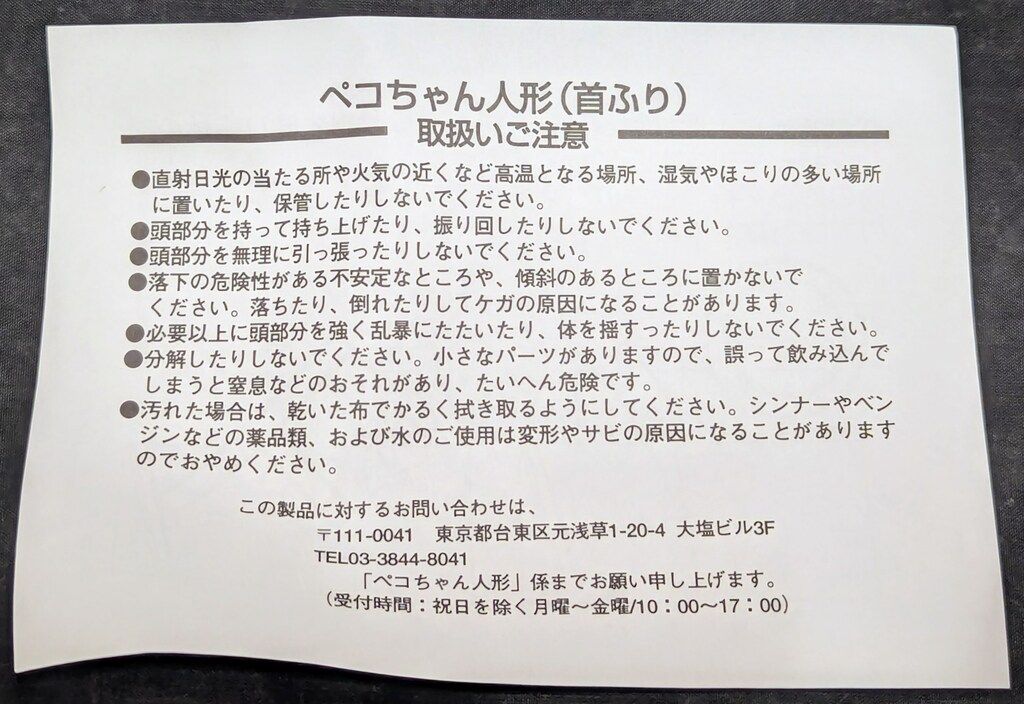 ペコちゃん人形(首ふり)
取扱いご注意
●直射日光の当たる所や火気の近くなど高温となる場所、湿気やほこりの多い場所
に置いたり、保管したりしないでください。
●頭部分を持って持ち上げたり、振り回したりしないでください。
●頭部分を無理に引っ張ったりしないでください。
●落下の危険性がある不安定なところや、傾斜のあるところに置かないで
ください。落ちたり、倒れたりしてケガの原因になることがあります。
●必要以上に頭部分を強く乱暴にたたいたり、体を揺すったりしないでください。
●分解したりしないでください。小さなパーツがありますので、誤って飲み込んで
しまうと窒息などのおそれがあり、たいへん危険です。
●汚れた場合は、乾いた布でかるく拭き取るようにしてください。シンナーやベン
ジンなどの薬品類、および水のご使用は変形やサビの原因になることがあります
のでおやめください。
この製品に対するお問い合わせは、
〒111-0041 東京都台東区元浅草1-20-4 大塩ビル3F
TEL03-3844-8041
「ペコちゃん人形」係までお願い申し上げます。
(受付時間:祝日を除く月曜~金曜/10:00~17:00)